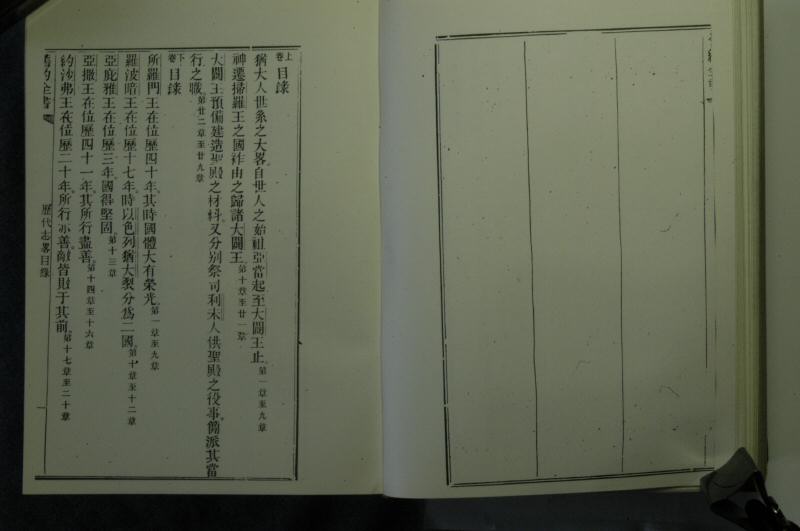 上卷目錄
猶大人世系之大畧自世人之始祖亞當起至大闢王止。第一章至九章
神遷掃羅王之國祚由之歸諸大闢王。第十章至廿一章
大闢王預備建造聖殿之材料。又分別祭司利未人供聖殿之役事。備派其當
行之職。第廿二章至廿九章
下卷目錄
所羅門王在位歷四十年。其時國體大有榮光。第一章至九章
羅波暗王在位歷十七年。時以色列猶大裂分爲二國。第十章至十二章
亞庇雅王在位歷三年。國得堅固。第十三章
亞撒王在位歷四十一年。其所行盡善。第十四章至十六章
約沙弗王在位歷二十年。所行亦善。敵皆敗于其前。第十七章至二十章
舊約全書
歷代志畧目錄
一